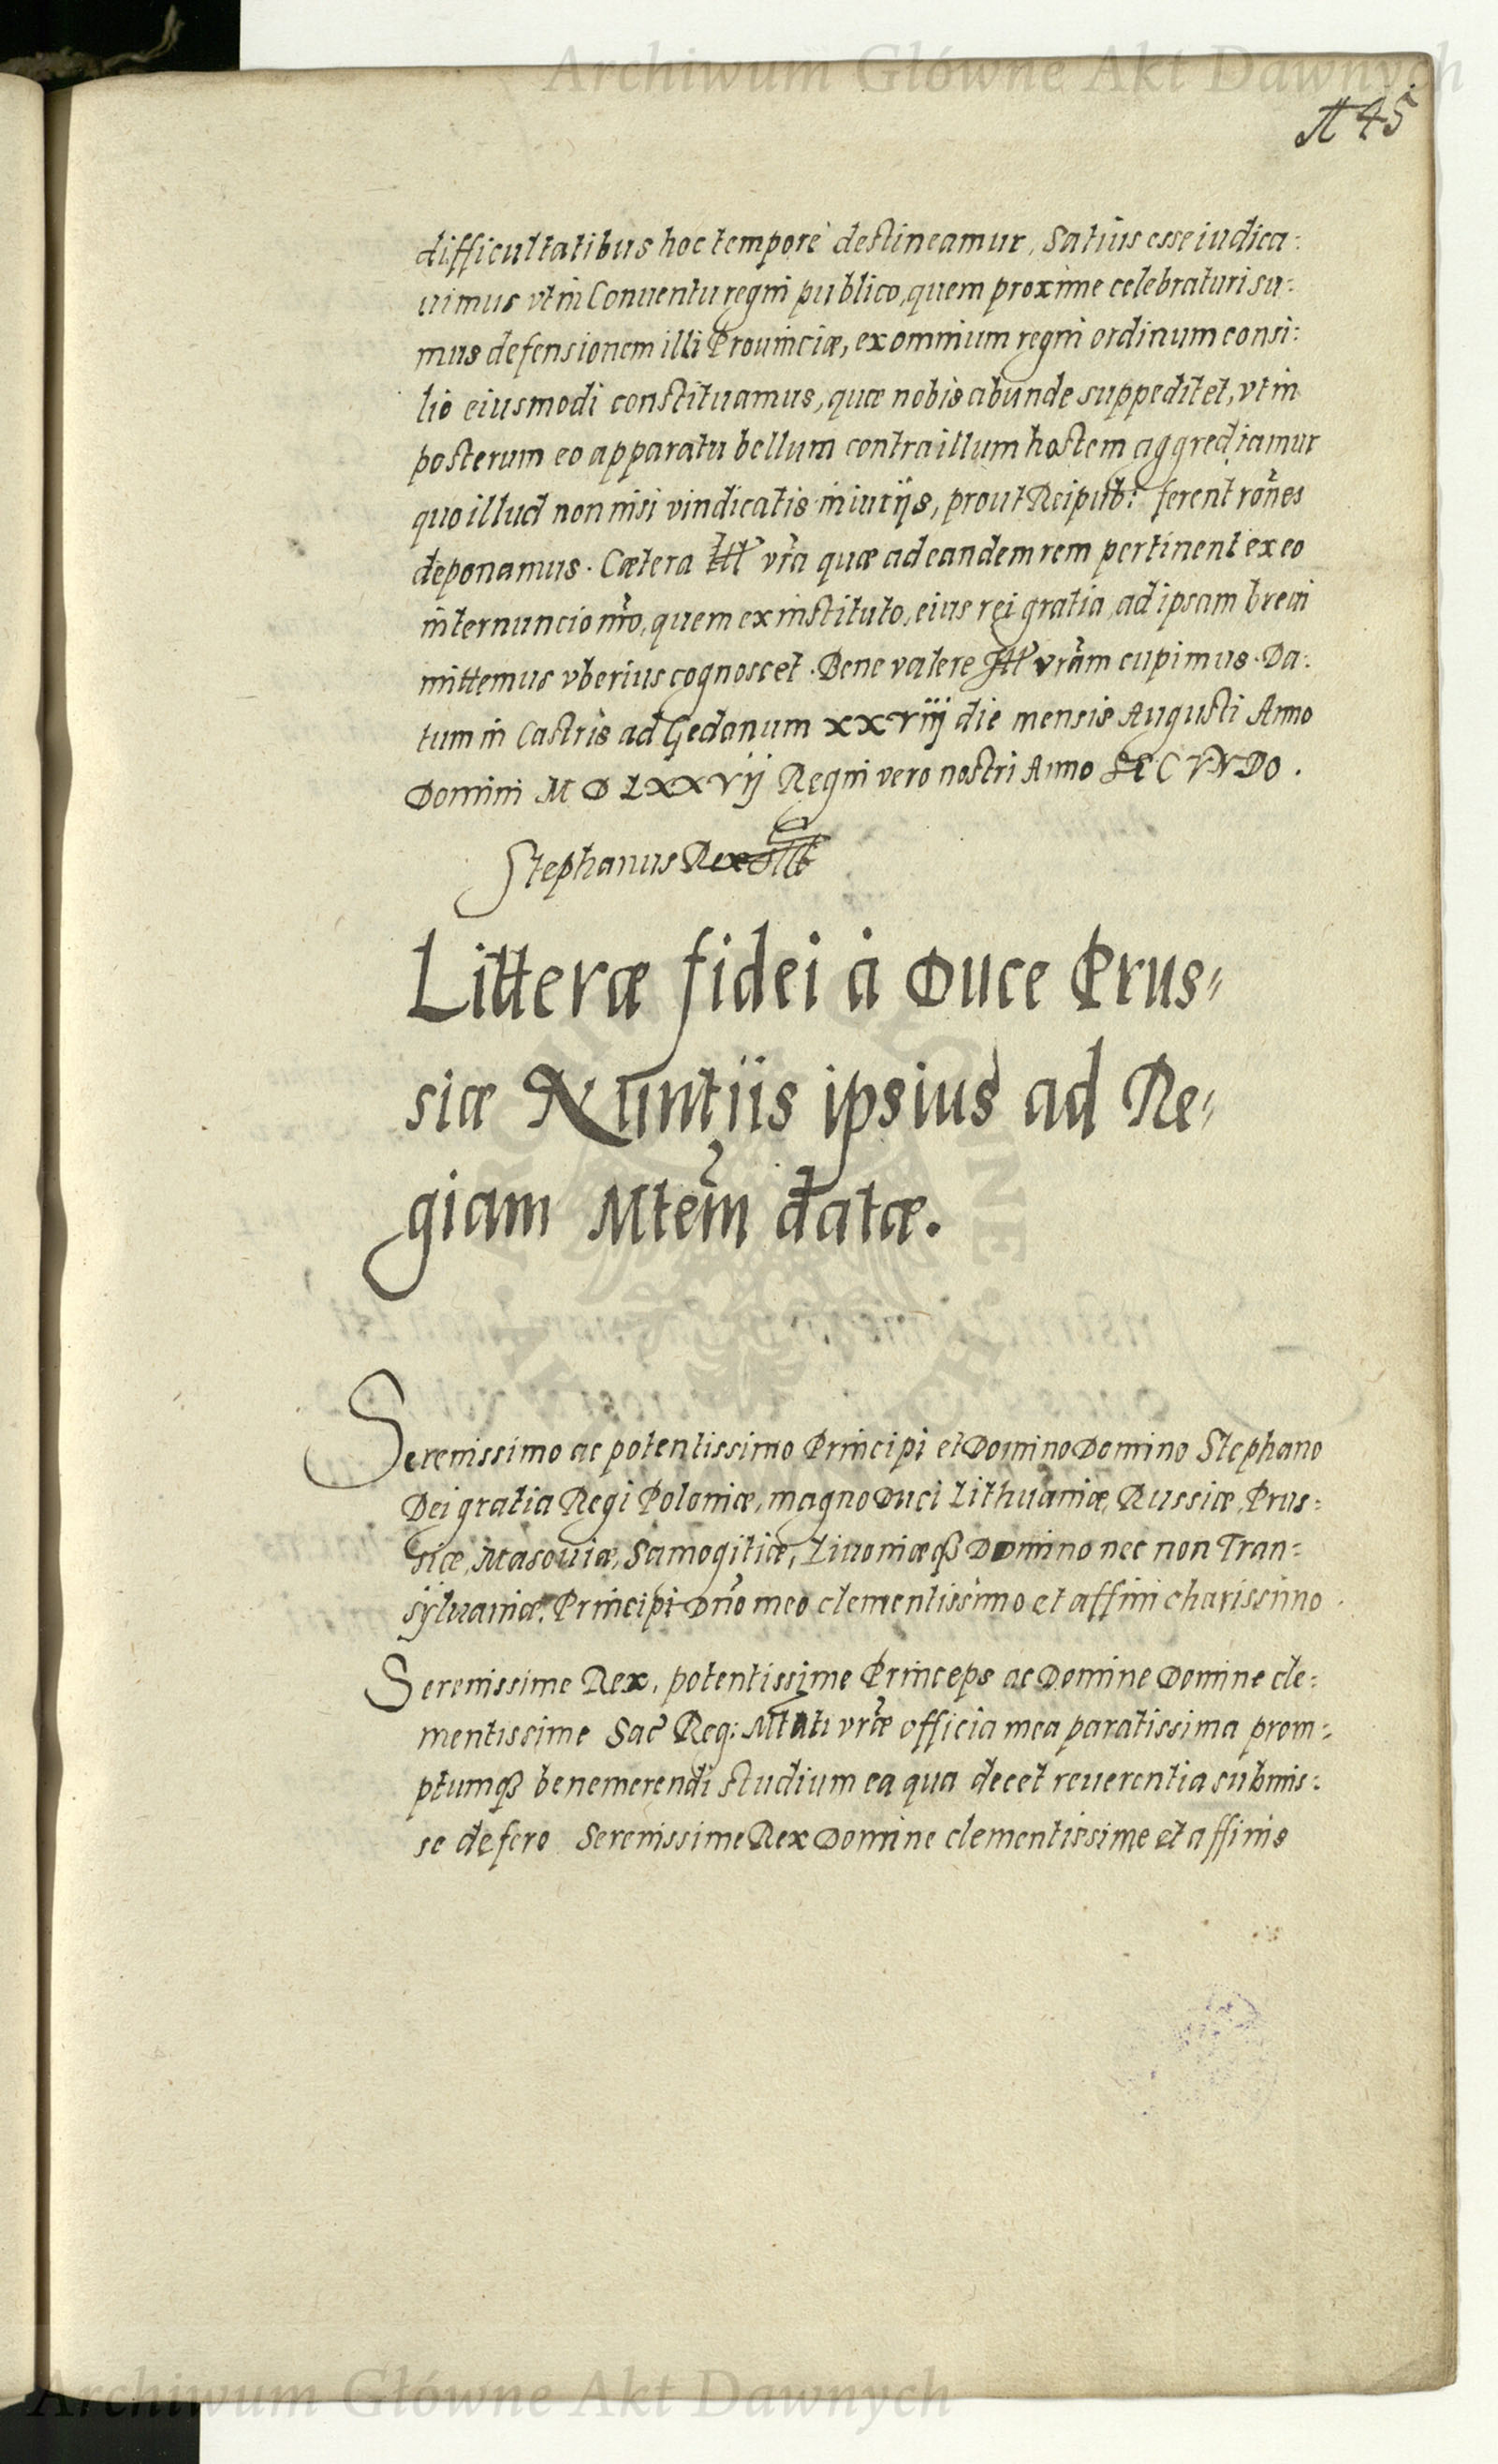 Archiwum Główne Akt Dawnych
45
difficultatibus hoc tempore destineamur, Satius esse iudica:
uimus vt in Conuentu regni publico, quem proxime celebraturi su:
mus defensionem illi Prouinciæ, ex omnium regni ordinum consi:
lio eiusmodi constituamus, quæ nobis abunde suppeditet, vt in
posterum eo apparatu bellum contra illum hostem aggrediamur
quo illud non nisi vindicatis iniurijs, prout Reipub: ferent rões
deponamus. Cætera Illt vra quæ ad eandem rem pertinent ex eo
internuncio nro, quem ex instituto, eius rei gratia, ad ipsam breui
mittemus vberius cognoscet. Bene valere Illt vram cupimus. Da:
tum in Castris ad Gedanum xxviij die mensis Augusti Anno
Domini M D LXXVij Regni vero nostri Anno SECVNDO.
Stephanus Rex
Litteræ fidei à Duce Prus=
siæ Nuntiis ipsius ad Re=
giam Mtem datæ.
Serenissimo ac potentissimo Principi et Domino Domino Stephano
Dei gratia Regi Poloniæ, magno Duci Lithuaniæ, Russiæ, Prus:
siæ, Masouiæ, Samogitiæ, Liuoniæq3 Domino nec non Tran=
sylvaniæ, Principi Dno meo clementissimo et affini charissimo.
Serenissime Rex, potentissime Princeps ac Domine Domine cle:
mentissime Sac Reg: Mtati vræ officia mea paratissima prom=
ptumq3 benemerendi studium ea qua decet reuerentia submis:
se defero Serenissime Rex Domine clementissime et affinis
ARCHIWUM GŁÓWNE AKT DAWNYCH
Archiwum Główne Akt Dawnych